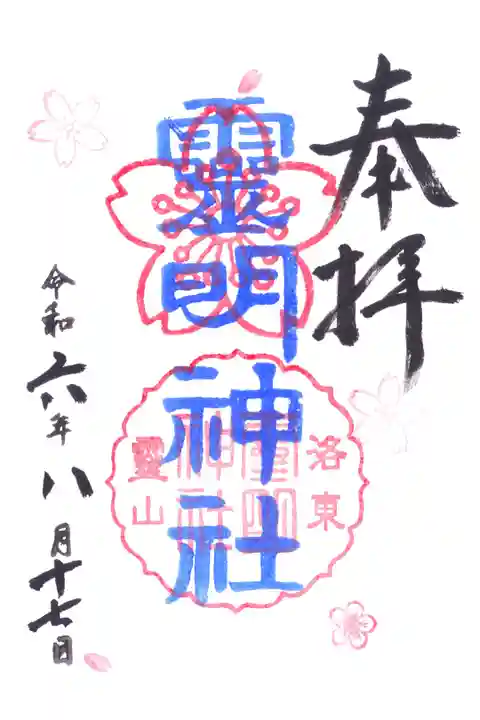 奉拝
靈明神社
洛東
靈明神社
靈山
令和六年八月十七日